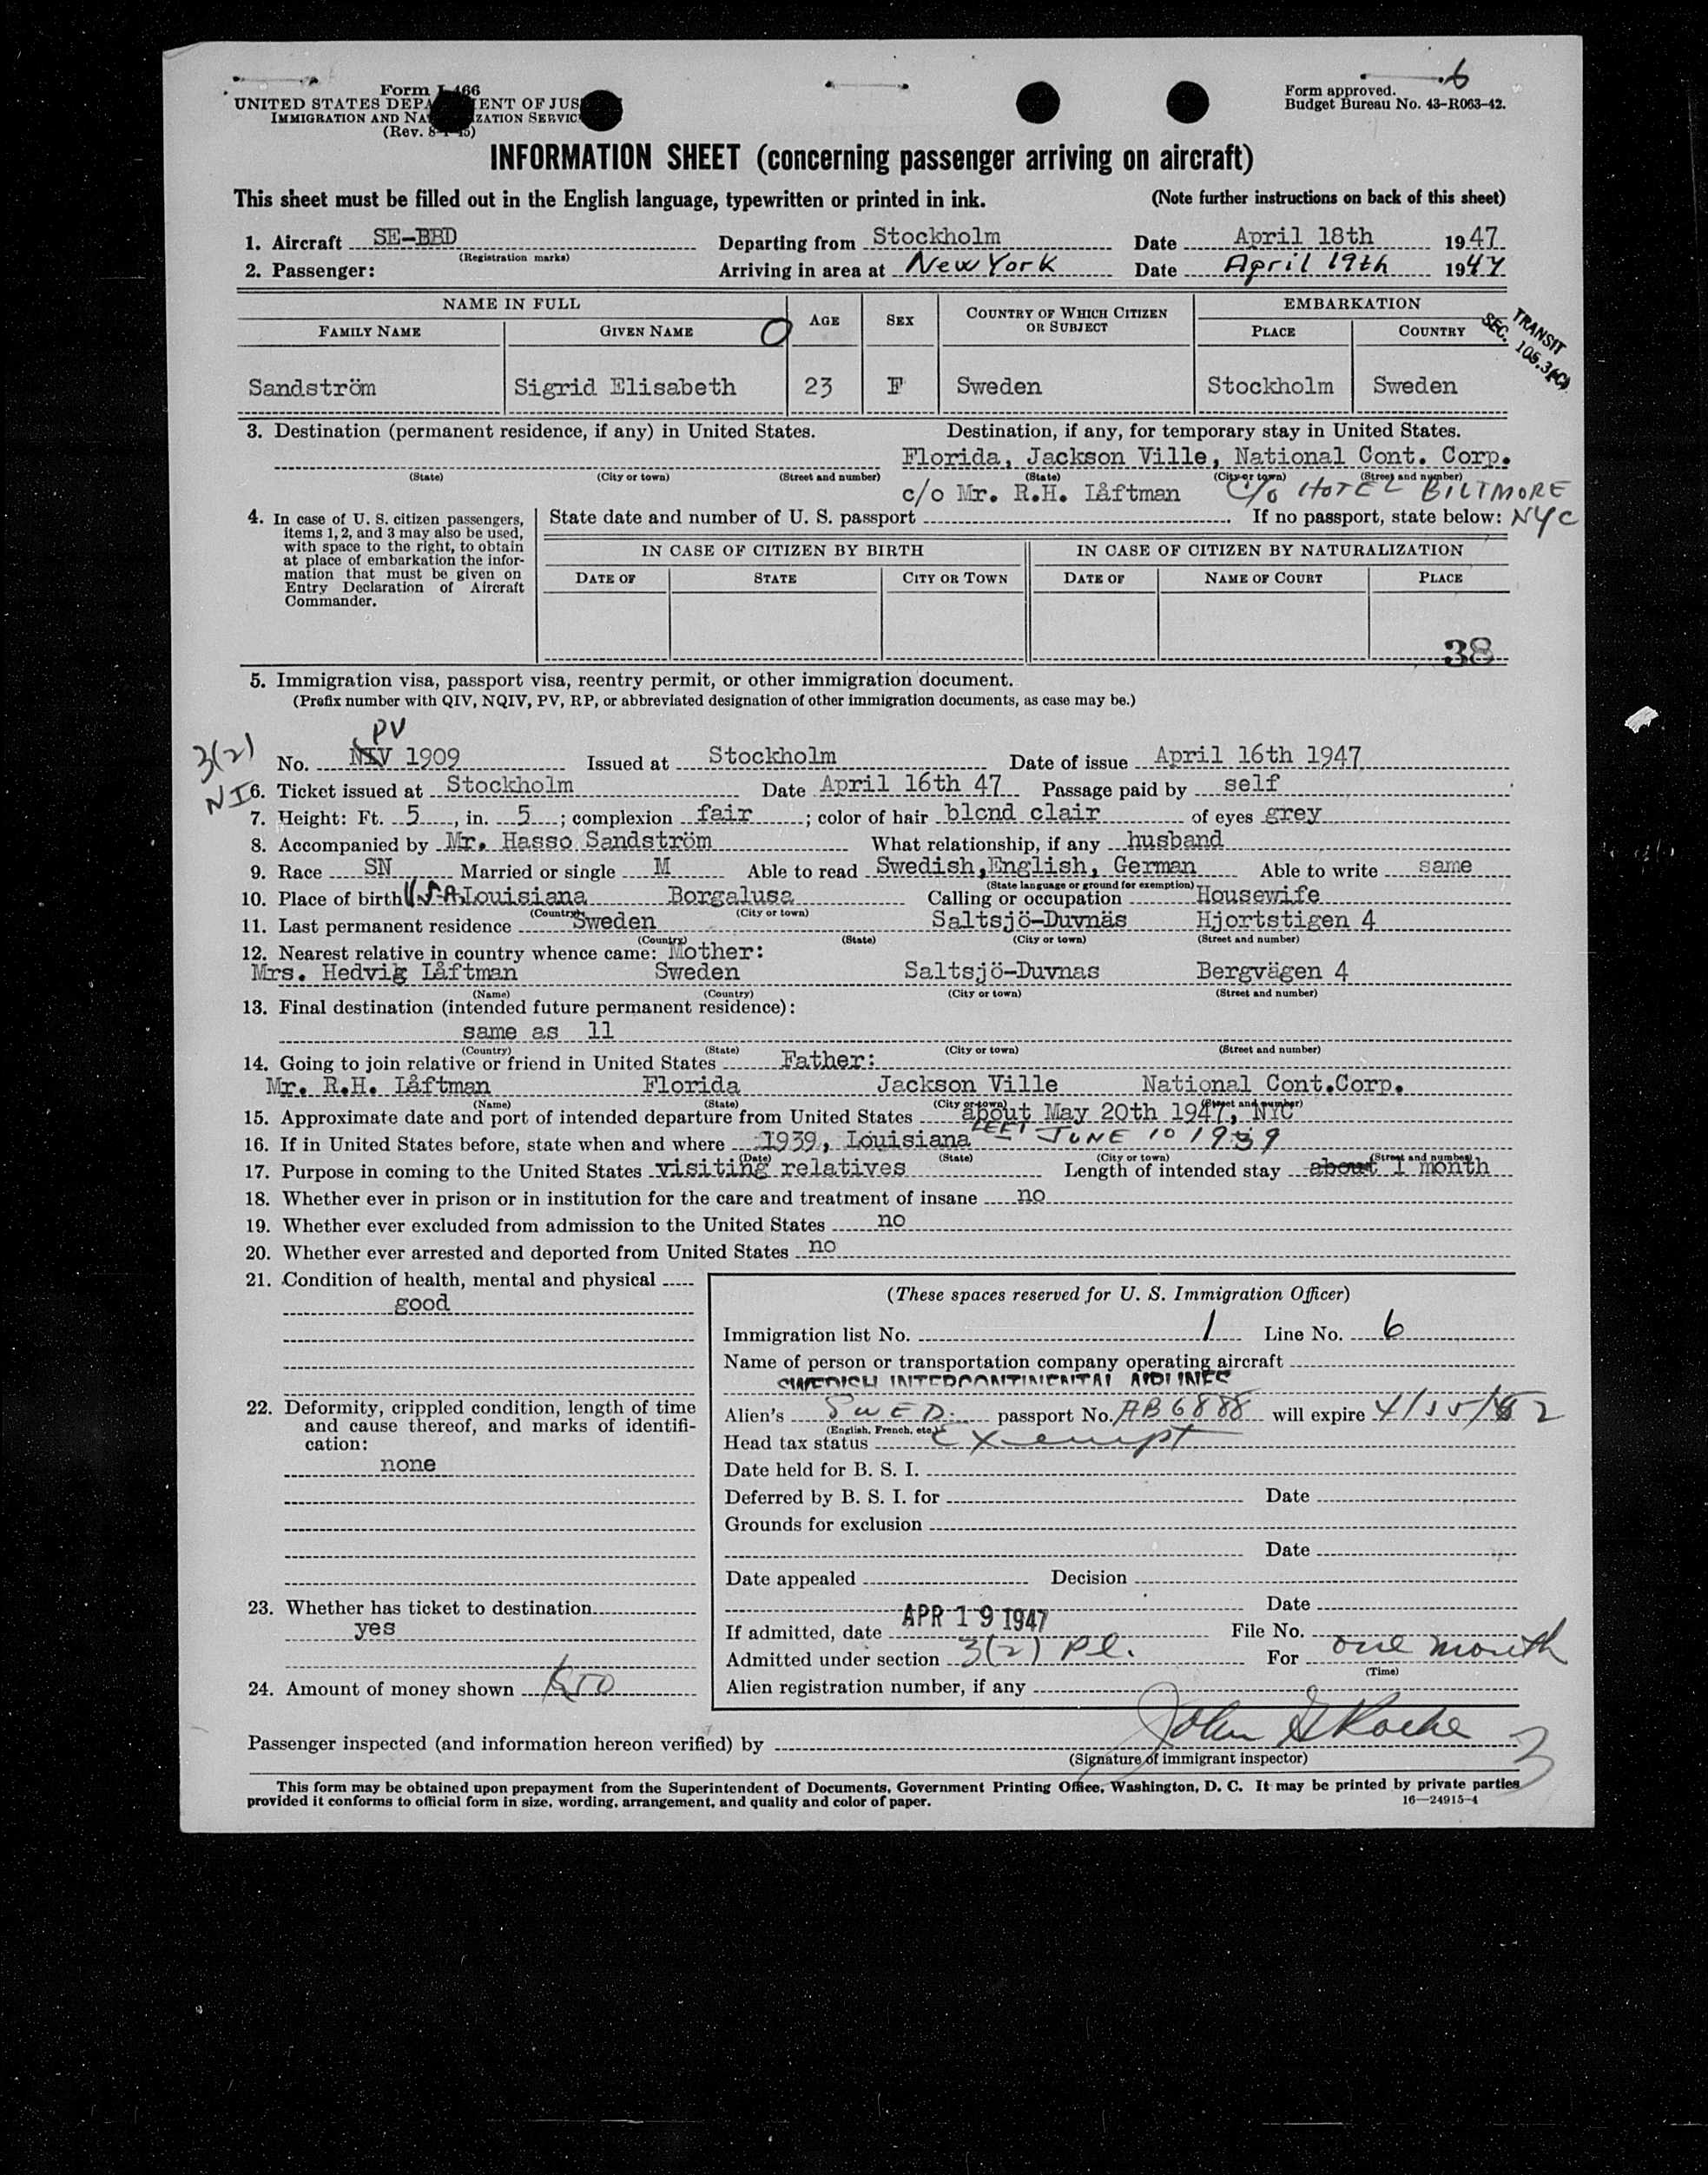 6
Form I-466
UNITED STATES DEPARTMENT OF JUSTICE
IMMIGRATION AND NATURALIZATION SERVICE
(Rev. 8-1-45)
Form approved.
Budget Bureau No. 43-R063-42.
INFORMATION SHEET (concerning passenger arriving on aircraft)
This sheet must be filled out in the English language, typewritten or printed in ink. (Note further instructions on back of this sheet)
1. Aircraft SE-BBD Departing from Stockholm Date April 18th 1947
(Registration marks)
2. Passenger: Arriving in area at New York Date April 19th 1947
NAME IN FULL AGE SEX COUNTRY OF WHICH CITIZEN OR SUBJECT EMBARKATION
FAMILY NAME GIVEN NAME PLACE COUNTRY
TRANSIT
SEC. 105.3(C)
Sandström Sigrid Elisabeth 23 F Sweden Stockholm Sweden
3. Destination (permanent residence, if any) in United States. Destination, if any, for temporary stay in United States.
Florida, Jackson Ville, National Cont. Corp.
(State) (City or town) (Street and number) (State) (City or town) (Street and number)
c/o Mr. R.H. Låftman C/o HOTEL BILTMORE
NYC
4. In case of U. S. citizen passengers, items 1, 2, and 3 may also be used, with space to the right, to obtain at place of embarkation the information that must be given on Entry Declaration of Aircraft Commander.
State date and number of U. S. passport If no passport, state below:
IN CASE OF CITIZEN BY BIRTH IN CASE OF CITIZEN BY NATURALIZATION
DATE OF STATE CITY OR TOWN DATE OF NAME OF COURT PLACE
38
5. Immigration visa, passport visa, reentry permit, or other immigration document.
(Prefix number with QIV, NQIV, PV, RP, or abbreviated designation of other immigration documents, as case may be.)
PV
3(2)
No. NIV 1909 Issued at Stockholm Date of issue April 16th 1947
NI
6. Ticket issued at Stockholm Date April 16th 47 Passage paid by self
7. Height: Ft. 5, in. 5; complexion fair; color of hair blond clair of eyes grey
8. Accompanied by Mr. Hasso Sandström What relationship, if any husband
9. Race SN Married or single M Able to read Swedish, English, German Able to write same
(State language or ground for exemption)
10. Place of birth USA Louisiana Borgalusa Calling or occupation Housewife
(Country) (City or town)
11. Last permanent residence Sweden Saltsjö-Duvnäs Hjortstigen 4
(Country) (State) (City or town) (Street and number)
12. Nearest relative in country whence came: Mother:
Mrs. Hedvig Låftman Sweden Saltsjö-Duvnas Bergvägen 4
(Name) (Country) (City or town) (Street and number)
13. Final destination (intended future permanent residence):
same as 11
(Country) (State) (City or town) (Street and number)
14. Going to join relative or friend in United States Father:
Mr. R.H. Låftman Florida Jackson Ville National Cont.Corp.
(Name) (State) (City or town) (Street and number)
15. Approximate date and port of intended departure from United States about May 20th 1947, NYC
16. If in United States before, state when and where 1939, Louisiana LEFT JUNE 10 1939
(Date) (State) (City or town) (Street and number)
17. Purpose in coming to the United States visiting relatives Length of intended stay about 1 month
18. Whether ever in prison or in institution for the care and treatment of insane no
19. Whether ever excluded from admission to the United States no
20. Whether ever arrested and deported from United States no
21. Condition of health, mental and physical
good
22. Deformity, crippled condition, length of time and cause thereof, and marks of identification:
none
23. Whether has ticket to destination
yes
24. Amount of money shown
(These spaces reserved for U. S. Immigration Officer)
Immigration list No. 1 Line No. 6
Name of person or transportation company operating aircraft
SWEDISH INTERCONTINENTAL AIRLINES
Alien's SWED. passport No. AB6888 will expire 4/15/52
(English, French, etc.)
Head tax status Exempt
Date held for B. S. I.
Deferred by B. S. I. for Date
Grounds for exclusion
Date
Date appealed Decision
Date
If admitted, date APR 19 1947 File No.
Admitted under section 3(2) For one month
(Time)
Alien registration number, if any
Passenger inspected (and information hereon verified) by John G Roche
(Signature of immigrant inspector)
3
This form may be obtained upon prepayment from the Superintendent of Documents, Government Printing Office, Washington, D. C. It may be printed by private parties
provided it conforms to official form in size, wording, arrangement, and quality and color of paper. 16—24915-4